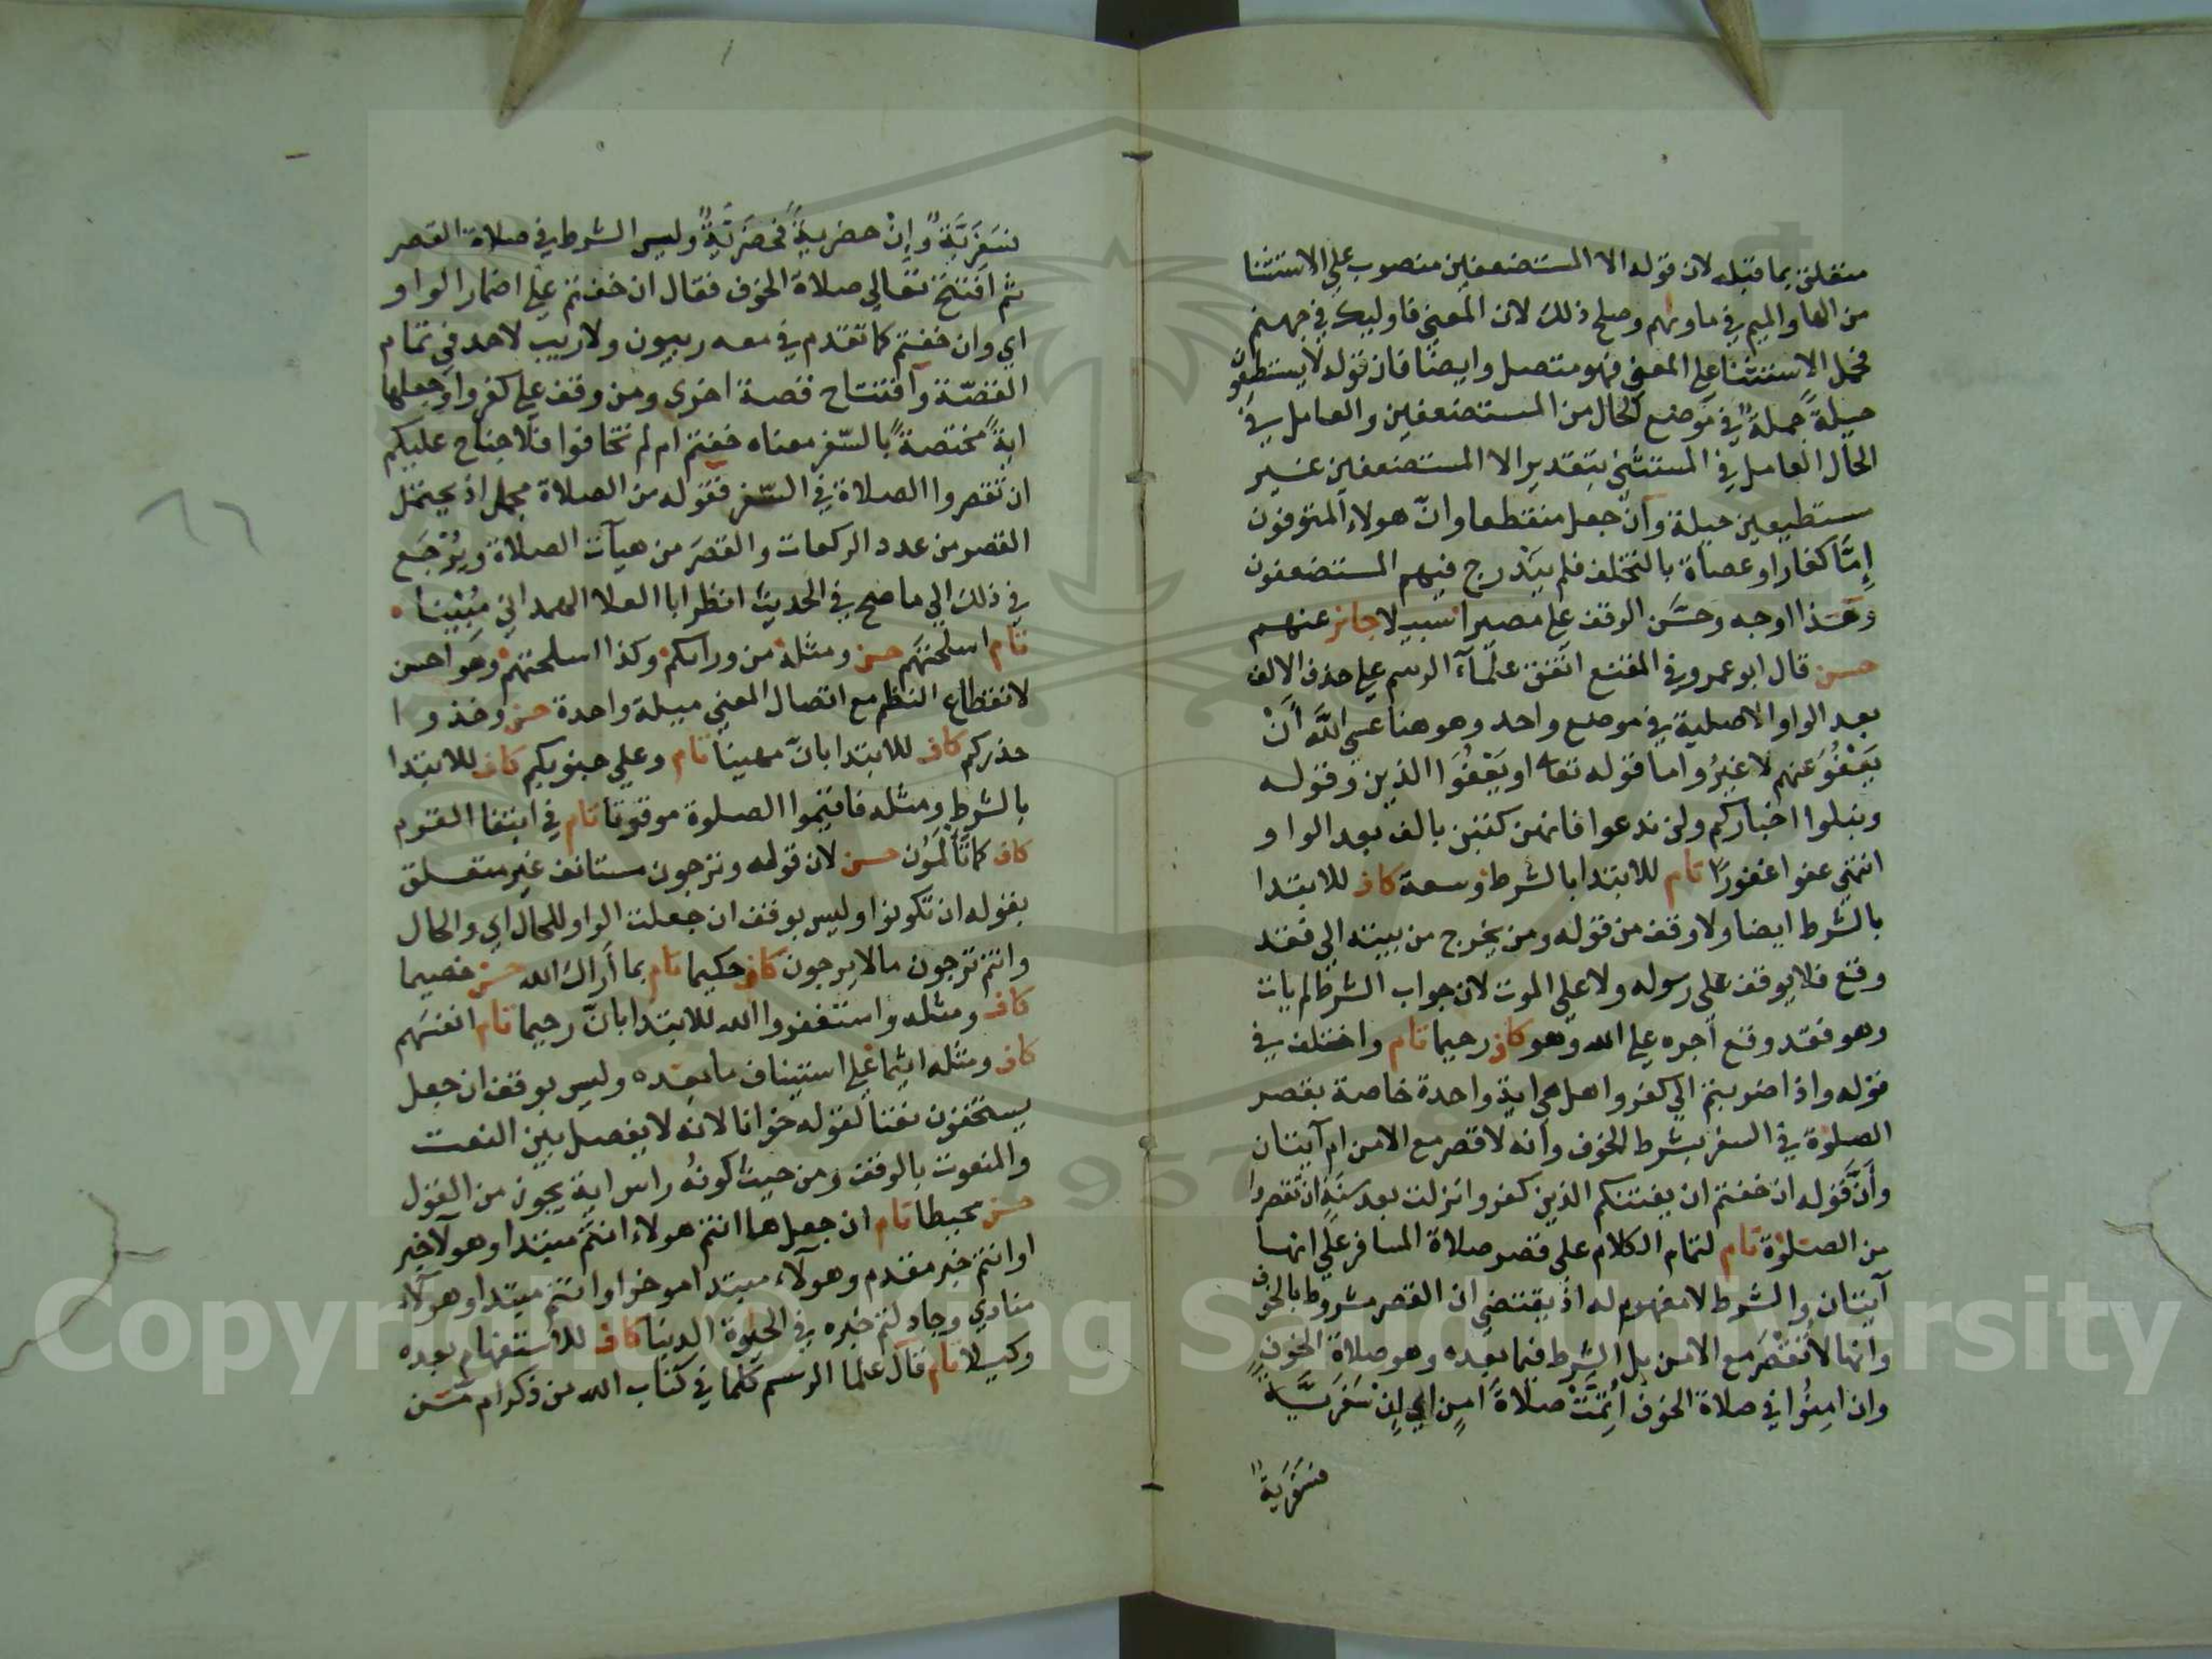 متعلق بما قبله لان قوله الا المستضعفين منصوب على الاستثنا
من الها والميم في ماويهم وصلح ذلك لان المعنى فاوليك في جهنم
فحمل الاستثنا على المعنى فهو متصل وايضا فان قوله لا يستطيعون
حيلةً جملةٌ في موضع الحال من المستضعفين والعامل في
الحال العامل في المستثنى بتقدير الا المستضعفين غير
مستطيعين حيلة وان جعل منقطعا وانّ هولاء المتوفون
إمَّا كفارا او عصاة بالتخلف فلم يَنْدرج فيهم المستضعفون
وهذا اوجه وحسَّن الوقف على مصيرا سبيلا جائز عنهم
حسن قال ابو عمرو في المقنع اتفق علمآء الرسم على حذف الالف
بعد الواو الاصلية في موضع واحد وهو هنا عسى اللَّه أَنْ
يَعْفُوَ عنهم لا غيرُ واما قوله تعا او يَعْفُوَا الذين وقوله
ونبلوا اخباركم ولن ندعوا فانهن كتبن بالف بعد الواو
انتهى عفوا غفورًا تام للابتدا بالشرط وسعة كاف للابتدا
بالشرط ايضا ولا وقف من قوله ومن يخرج من بيته الى فقد
وقع فلا يوقف على رسوله ولا على الموت لان جواب الشرط لم يات
وهو فقد وقع اجره على الله وهو كاف رحيما تام واختلف في
قوله واذا ضربتم الى كفروا هل هي اية واحدة خاصة بقصر
الصلوة في السفر بشرط الخوف وانه لا قصر مع الامن ام آيتان
وأنَّ قوله ان خفتم ان يفتنكم الذين كفروا نزلت بعد سنةٍ ان تقصروا
من الصلوة تام لتمام الكلام على قصر صلاة المسافر على انها
آيتان والشرط لا مفهوم له اذ يقتضي ان القصر مشروط بالخوف
وانها لا تُقْصَر مع الامن بل الشرط فيما بعده وهو صلاة الخوفِ
وان امِنُوا في صلاة الخوف أُتِمَّتْ صلاةَ امنٍ اي إنْ سَفَرِيَّةً
فسَفَرِيَةً
فسَفَرِيَّةً وإنْ حضريةً فحَضَرِيَّةً وليس الشرط في صلاة القصر
ثم افتتح تعالى صلاة الخوف فقال ان خفتم على اضمار الواو
اي وان خفتم كما تقدم في معه ربيون ولا ريب لاحد في تمام
القصّة وافتتاح قصة اخرى ومن وقف على كفروا وجعلها
ايةً مختصةً بالسّفر معناه خفتم ام لم تخافوا فلا جناح عليكم
ان تقصروا الصلاة في السّفر فقوله من الصلاة مجمل اذ يحتمل
القصر من عدد الركعات والقصَر من هيآت الصلاة ويُرْجَع
في ذلك الى ما صح في الحديث انظر ابا العلا الهمداني مُبينا
تام اسلحتهم حسن ومثله من ورائكم وكذا اسلحتهم وهو احسن
لانقطاع النظم مع اتصال المعنى ميلة واحدة حسن وخذوا
حذركم كاف للابتدا بانّ مهينا تام وعلى جنوبكم كاف للابتدا
بالشرط ومثله فاقيموا الصلوة موقوتا تام في ابتغا القوم
كاف كما تَأْلَمُون حسن لان قوله وترجون مستانف غير متعلق
بقوله ان تكونوا وليس بوقف ان جعلت الواو للحال اي والحال
وانتم ترجون ما لا يرجون كاف حكيما تام بما أَراك الله حسن خصيما
كاف ومثله واستغفروا الله للابتدا بانّ رحيما تام انفسهم
كاف ومثله اثيما على استيناف ما بعده وليس بوقف ان جعل
يستخفون نعتا لقوله خوانا لانه لا يفصل بين النعت
والمنعوت بالوقف ومن حيث كونُه راس اية يجوز من القول
حسن محيطا تام ان جعل ها انتم هولاء انتم مبتدا وهولآ خبر
او انتم خبر مقدم وهولآء مبتدا موخر او انتم مبتدا وهولآء
منادى وجادلتم خبره في الحيوة الدنيا كاف للاستفهام بعده
وكيلا تام قال علما الرسم كلما في كتاب الله من ذكر ام مّن